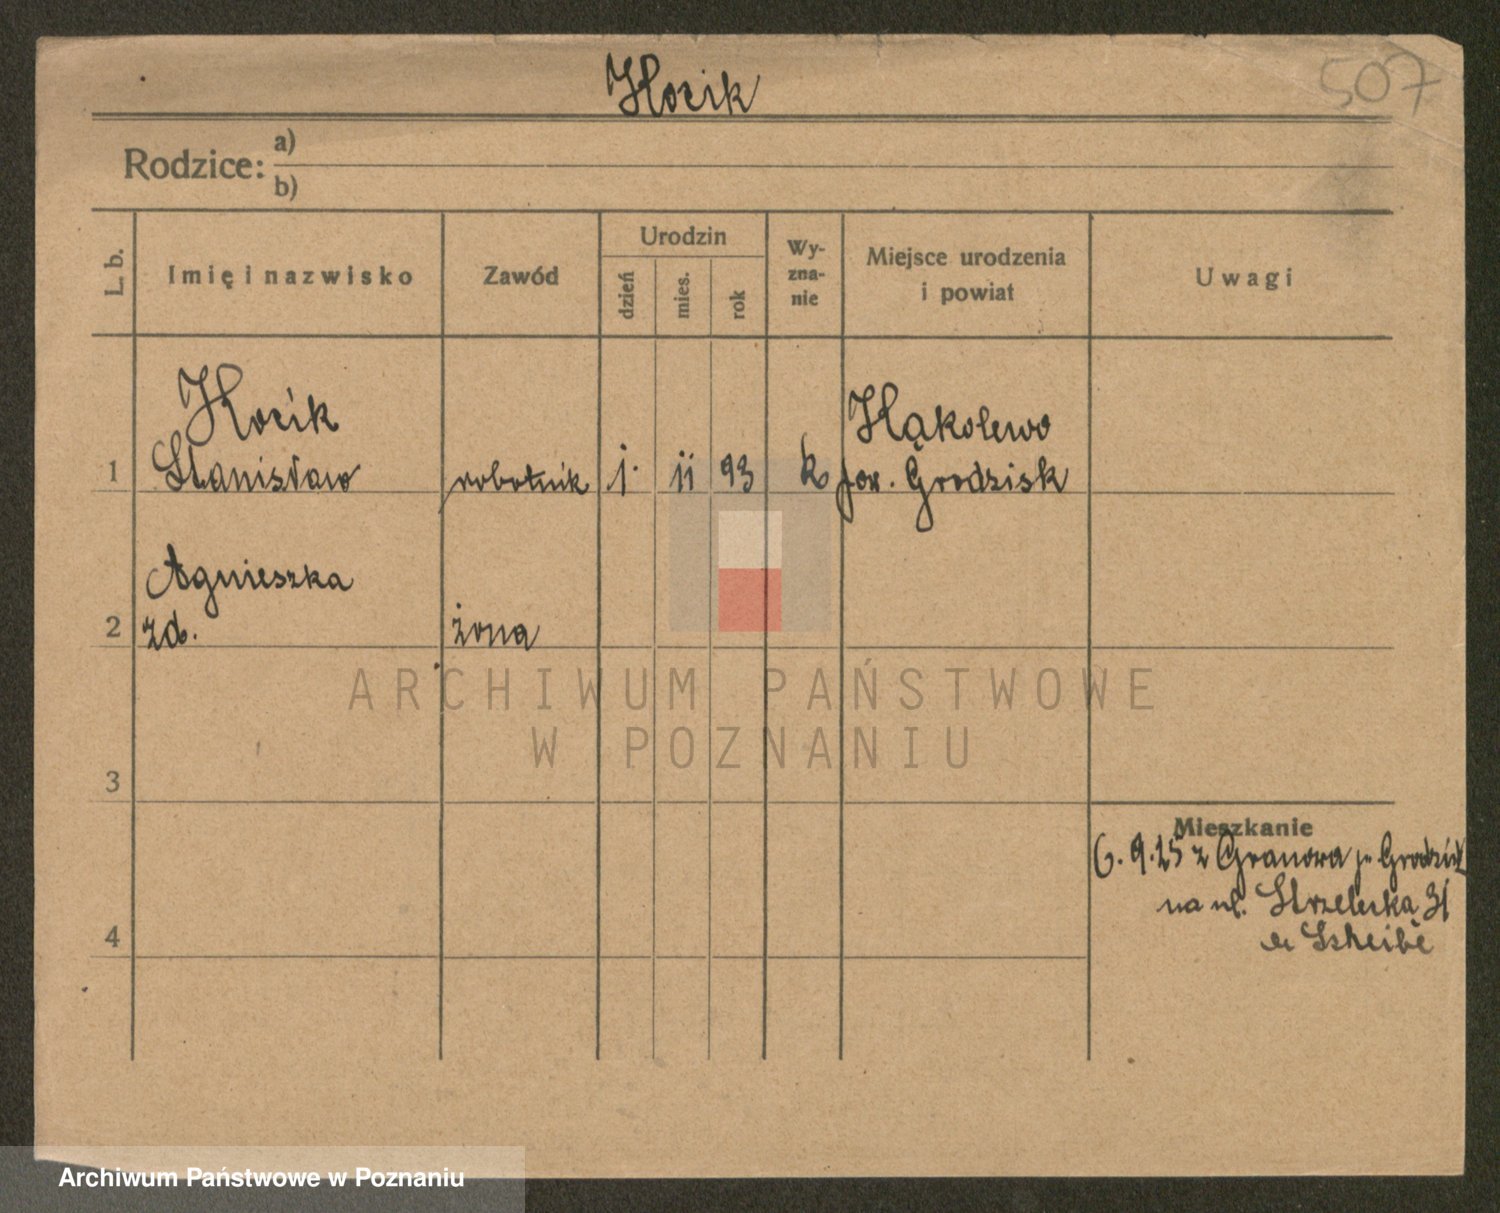 Kocik
507
Rodzice:
a)
b)
L. b.
Imię i nazwisko
Zawód
Urodzin
dzień
mies.
rok
Wy-
zna-
nie
Miejsce urodzenia
i powiat
Uwagi
1
Kocik
Stanisław
robotnik
1.
11
93
k
Kąkolewo
pow. Grodzisk
2
Agnieszka
zd.
żona
3
4
Mieszkanie
6.9.25 z Granowa p. Grodzisk
na ul. Strzelecką 31
Scheibe
ARCHIWUM PAŃSTWOWE
W POZNANIU
Archiwum Państwowe w Poznaniu